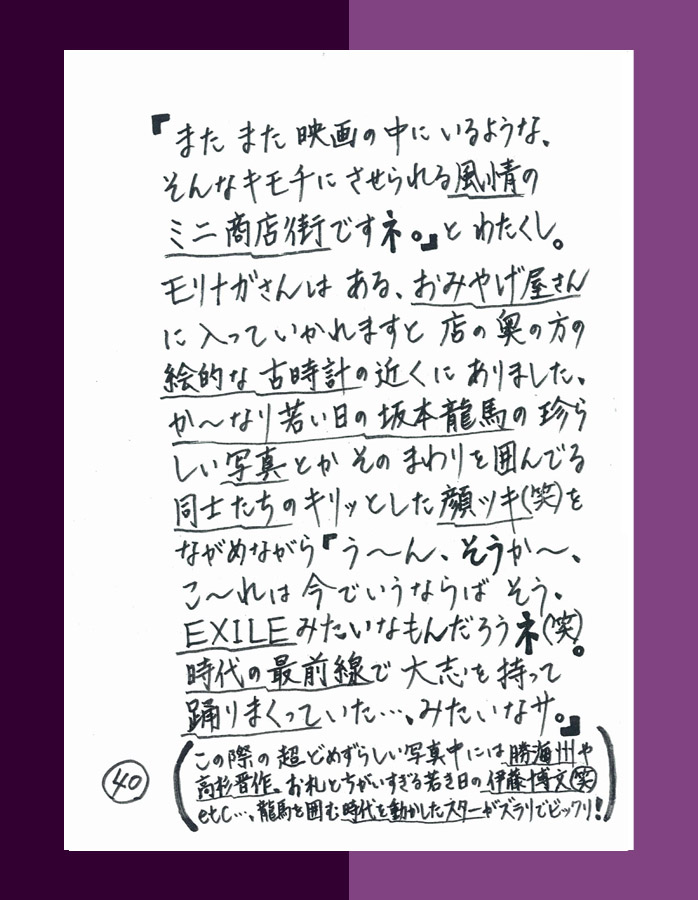 『また また 映画の中に いるような、
そんなキモチに させられる風情の
ミニ商店街ですネ。』と わたくし。
モリナガさんは ある、おみやげ屋さん
に 入って いかれますと 店の奥の方の
絵的な 古時計の近くに ありました、
か〜なり 若い日の 坂本龍馬の 珍ら
しい 写真とか その まわりを囲んでる
同士たちのキリッとした顔ツキ(笑)を
ながめながら『う〜ん、そうか〜、
こ〜れは 今でいうならば そう、
EXILEみたいなもんだろうネ(笑)。
時代の最前線で 大志を 持って
踊りまくっていた…、みたいなサ。』
(この際の 超どめずらしい写真中には 勝海舟や
高杉晋作、お札とちがいすぎる若き日の 伊藤博文(笑)
etc…、龍馬を囲む時代を動かしたスターがズラリでビックリ!)
40